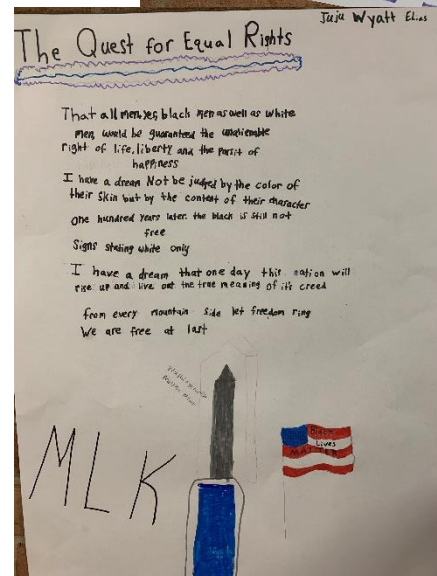 Juju Wyatt Elias
The Quest for Equal Rights
That all men, yes, black men as well as white
men, would be guaranteed the unalienable
right of life, liberty and the pursit of
happiness
I have a dream Not be judged by the color of
their skin but by the content of their character
one hundred years later the black is still not
free
Signs stating white only
I have a dream that one day this nation will
rise up and live out the true meaning of it's creed
from every mountain side let freedom ring
We are free at last
Washington
MLK
Black
Lives
MATTER